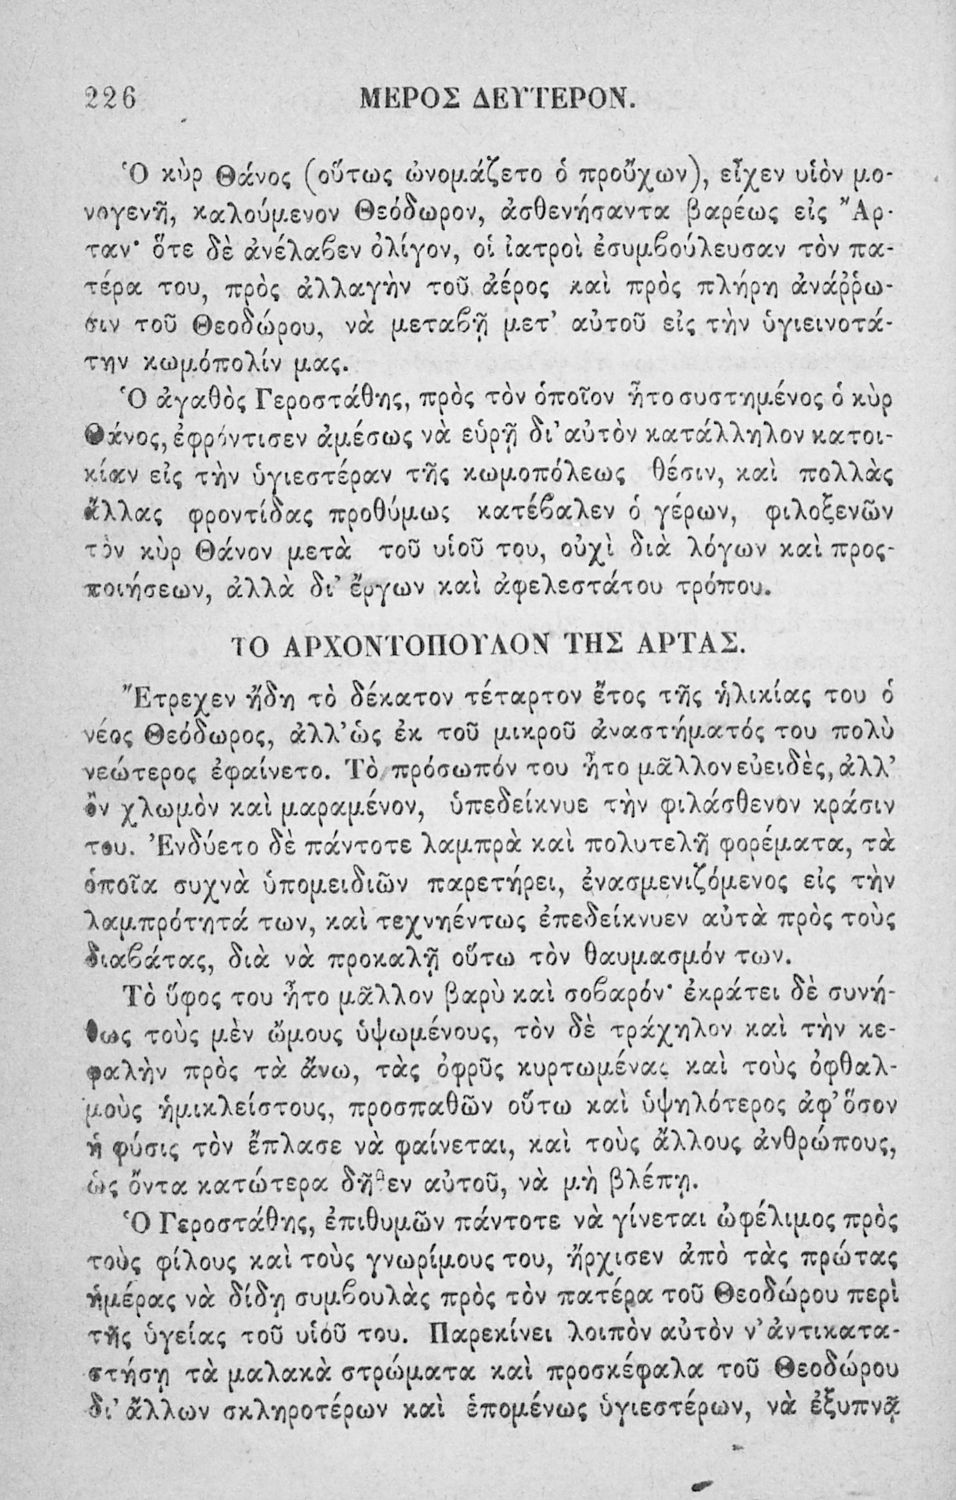 226 ΜΕΡΟΣ ΔΕΥΤΕΡΟΝ.
Ὁ κὺρ Θάνος (οὕτως ὠνομάζετο ὁ προὔχων), εἶχεν υἱὸν μο-
νογενῆ, καλούμενον Θεόδωρον, ἀσθενήσαντα βαρέως εἰς Ἄρ-
ταν· ὅτε δὲ ἀνέλαβεν ὀλίγον, οἱ ἰατροὶ ἐσυμβούλευσαν τὸν πα-
τέρα του, πρὸς ἀλλαγὴν τοῦ ἀέρος καὶ πρὸς πλήρη ἀνάῤῥω-
σιν τοῦ Θεοδώρου, νὰ μεταβῇ μετ’ αὐτοῦ εἰς τὴν ὑγιεινοτά-
την κωμόπολίν μας.
Ὁ ἀγαθὸς Γεροστάθης, πρὸς τὸν ὁποῖον ἦτο συστημένος ὁ κὺρ
Θάνος, ἐφρόντισεν ἀμέσως νὰ εὑρῇ δι’ αὐτὸν κατάλληλον κατοι-
κίαν εἰς τὴν ὑγιεστέραν τῆς κωμοπόλεως θέσιν, καὶ πολλὰς
ἄλλας φροντίδας προθύμως κατέβαλεν ὁ γέρων, φιλοξενῶν
τὸν κὺρ Θάνον μετὰ τοῦ υἱοῦ του, οὐχὶ διὰ λόγων καὶ προς-
ποιήσεων, ἀλλὰ δι’ ἔργων καὶ ἀφελεστάτου τρόπου.
ΤΟ ΑΡΧΟΝΤΟΠΟΥΛΟΝ ΤΗΣ ΑΡΤΑΣ.
Ἔτρεχεν ἤδη τὸ δέκατον τέταρτον ἔτος τῆς ἡλικίας του ὁ
νέος Θεόδωρος, ἀλλ’ ὡς ἐκ τοῦ μικροῦ ἀναστήματός του πολὺ
νεώτερος ἐφαίνετο. Τὸ πρόσωπόν του ἦτο μᾶλλον εὐειδὲς, ἀλλ’
ὂν χλωμὸν καὶ μαραμένον, ὑπεδείκνυε τὴν φιλάσθενον κράσιν
του. Ἐνδύετο δὲ πάντοτε λαμπρὰ καὶ πολυτελῆ φορέματα, τὰ
ὁποῖα συχνὰ ὑπομειδιῶν παρετήρει, ἐνασμενιζόμενος εἰς τὴν
λαμπρότητά των, καὶ τεχνηέντως ἐπεδείκνυεν αὐτὰ πρὸς τοὺς
διαβάτας, διὰ νὰ προκαλῇ οὕτω τὸν θαυμασμόν των.
Τὸ ὕφος του ἦτο μᾶλλον βαρὺ καὶ σοβαρόν· ἐκράτει δὲ συνή-
θως τοὺς μὲν ὤμους ὑψωμένους, τὸν δὲ τράχηλον καὶ τὴν κε-
φαλὴν πρὸς τὰ ἄνω, τὰς ὀφρῦς κυρτωμένας καὶ τοὺς ὀφθαλ-
μοὺς ἡμικλείστους, προσπαθῶν οὕτω καὶ ὑψηλότερος ἀφ’ ὅσον
ἡ φύσις τὸν ἔπλασε νὰ φαίνεται, καὶ τοὺς ἄλλους ἀνθρώπους,
ὡς ὄντα κατώτερα δῆθεν αὐτοῦ, νὰ μὴ βλέπῃ.
Ὁ Γεροστάθης, ἐπιθυμῶν πάντοτε νὰ γίνεται ὠφέλιμος πρὸς
τοὺς φίλους καὶ τοὺς γνωρίμους του, ἤρχισεν ἀπὸ τὰς πρώτας
ἡμέρας νὰ δίδῃ συμβουλὰς πρὸς τὸν πατέρα τοῦ Θεοδώρου περὶ
τῆς ὑγείας τοῦ υἱοῦ του. Παρεκίνει λοιπὸν αὐτὸν ν’ ἀντικατα-
στήσῃ τὰ μαλακὰ στρώματα καὶ προσκέφαλα τοῦ Θεοδώρου
δι’ ἄλλων σκληροτέρων καὶ ἑπομένως ὑγιεστέρων, νὰ ἐξυπνᾷ